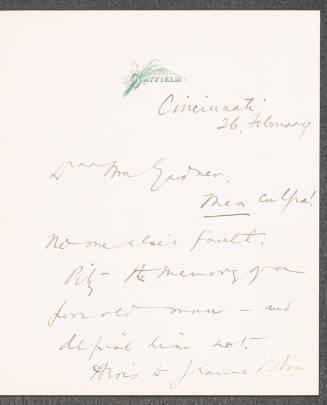 DAYFIELD
Cincinnati
26, February
Dear Mrs Gardner,
Mea culpa!
No one else's fault.
Pity the memory of a
poor old man - and
despise him not.
Here's to Jeanne d'Arc